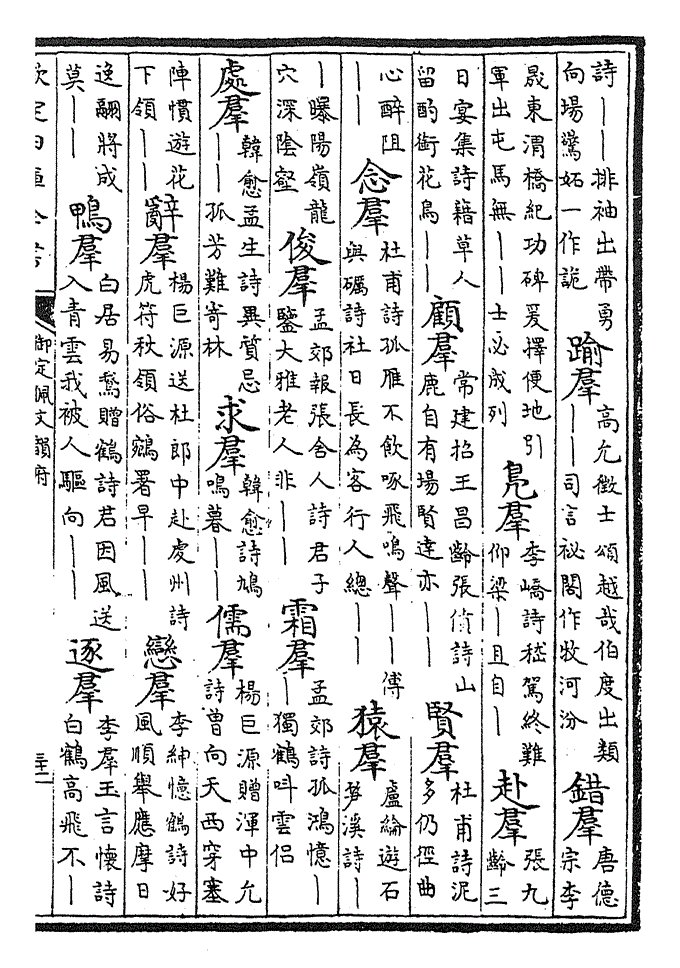 詩——排袖出帶勇向場驚妬一作詭 踰羣 高允徵士頌越哉伯度出類——司言祕閣作牧河汾 錯羣 唐德宗李
晟東渭橋紀功碑爰擇便地引軍出屯馬無——士必成列 鳧羣 李嶠詩嵇駕終難仰梁—且自— 赴羣 張九齡三
日宴集詩藉草人留酌銜花鳥—— 顧羣 常建招王昌齡張僨詩山鹿自有場賢達亦—— 賢羣 杜甫詩泥多仍徑曲
心醉阻—— 念羣 杜甫詩孤雁不飲啄飛鳴聲——傅與礪詩社日長為客行人總—— 猿羣 盧綸遊石笋溪詩—
—曝陽嶺龍穴深陰壑 俊羣 孟郊報張舍人詩君子鑒大雅老人非—— 霜羣 孟郊詩孤鴻憶——獨鶴叫雲侶
處羣 韓愈孟生詩異質忌——孤芳難寄林 求羣 韓愈詩鳩鳴暮—— 儒羣 楊巨源贈渾中允詩曾向天西穿塞
陣慣遊花下領—— 辭羣 楊巨源送杜郎中赴處州詩虎符秋領俗鵷署早—— 戀羣 李紳憶鶴詩好風順舉應摩日
逸翮將成莫—— 鴨羣 白居易鵞贈鶴詩君因風送入青雲我被人驅向—— 逐羣 李羣玉言懷詩白鶴高飛不—
欽定四庫全書 御定佩文韻府